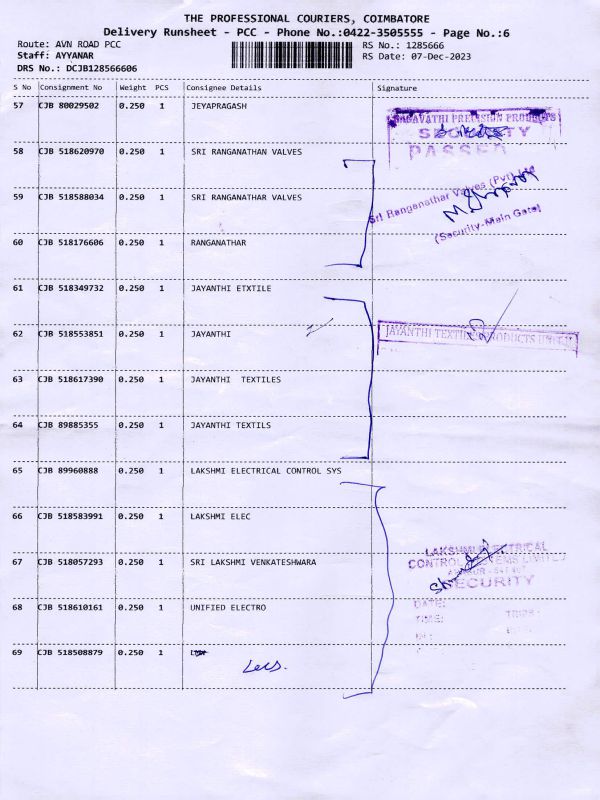 THE PROFESSIONAL COURIERS, COIMBATORE
Delivery Runsheet - PCC - Phone No.:0422-3505555 - Page No.:6
Route: AVN ROAD PCC
RS No.: 1285666
Staff: AYYANAR
RS Date: 07-Dec-2023
DRS No.: DCJB128566606
S No Consignment No Weight PCS Consignee Details Signature
57 CJB 80029502 0.250 1 JEYAPRAGASH
PRECISION PRODUCTS
SECURITY
PASSED
58 CJB 518620970 0.250 1 SRI RANGANATHAN VALVES
59 CJB 518588034 0.250 1 SRI RANGANATHAN VALVES
Sri Ranganathar Valves (Pvt) Ltd
(Security-Main Gate)
60 CJB 518176606 0.250 1 RANGANATHAR
61 CJB 518349732 0.250 1 JAYANTHI ETXTILE
62 CJB 518553851 0.250 1 JAYANTHI
JAYANTHI TEXTILE PRODUCTS UNIT
63 CJB 518617390 0.250 1 JAYANTHI TEXTILES
64 CJB 89885355 0.250 1 JAYANTHI TEXTILS
65 CJB 89960888 0.250 1 LAKSHMI ELECTRICAL CONTROL SYS
66 CJB 518583991 0.250 1 LAKSHMI ELEC
LAKSHMI ELECTRICAL
67 CJB 518057293 0.250 1 SRI LAKSHMI VENKATESHWARA
CONTROL SYSTEMS LIMITED
SECURITY
68 CJB 518610161 0.250 1 UNIFIED ELECTRO
DATE:
TIME:
69 CJB 518508879 0.250 1
Lecs.